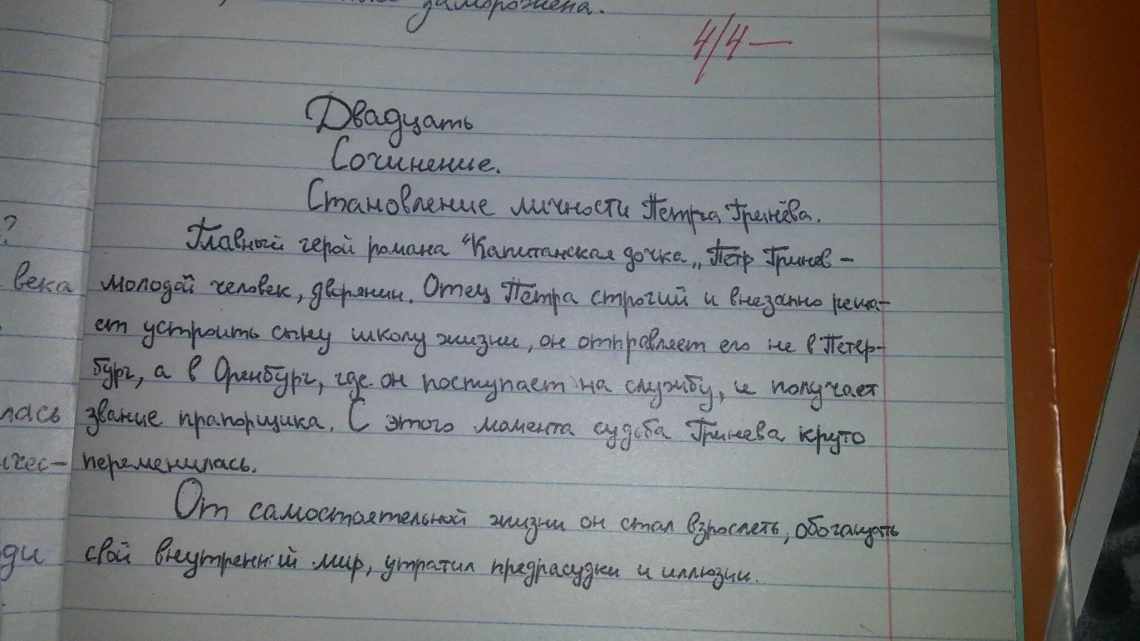 заморожена.
4/4—
Двадцать
Сочинение.
Становление личности Петра Гринёва.
?
Главный герой романа “Капитанская дочка„ Пётр Гринёв –
века молодой человек, дворянин. Отец Петра строгий и внезапно реша-
ет устроить сыну школу жизни, он отправляет его не в Петер-
бург, а в Оренбург, где он поступает на службу, и получает
лась звание прапорщика. С этого момента судьба Гринева круто
чес– переменилась.
От самостоятельной жизни он стал взрослеть, обогащать
ди свой внутренний мир, утратил предрасудки и иллюзии.